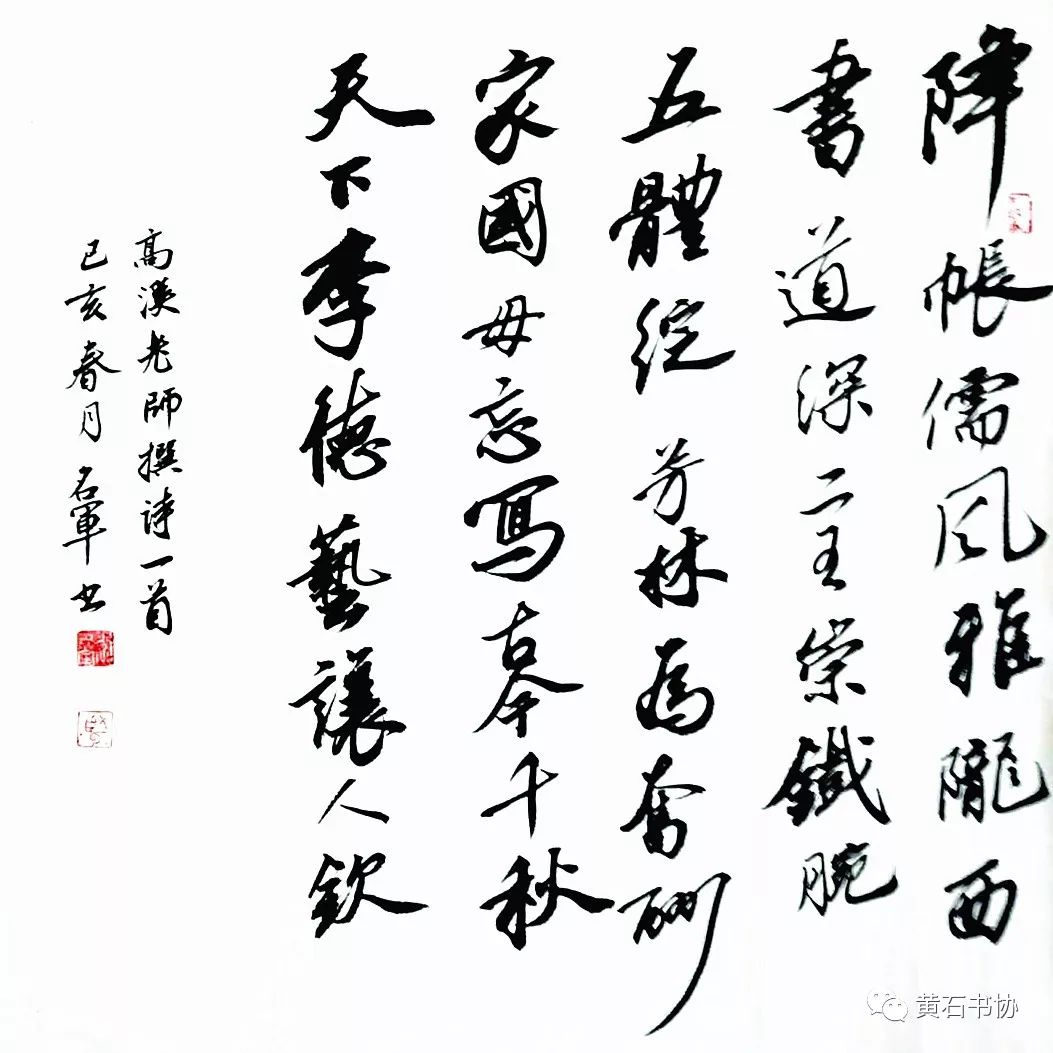 降帳儒風雅隴西
書道深二王崇鐵腕
五體綻芳林為奮酬
家國毋忘寫古今千秋
天下李德藝讓人欽
高溪老師撰詩一首
己亥春月名軍书
黄石书协